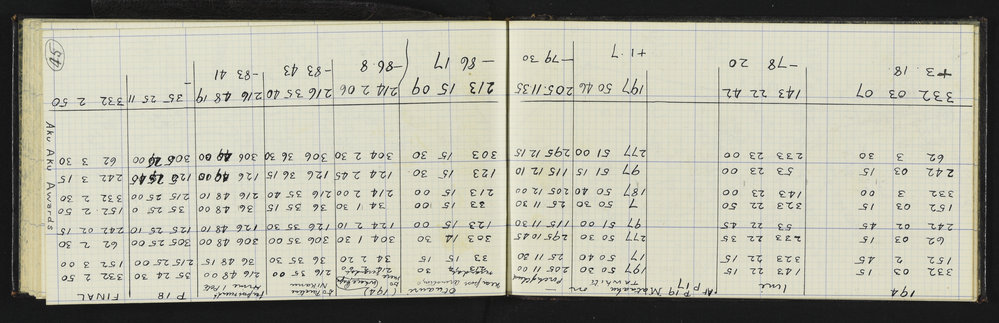 194 Line AT P17 P19 Matuaku on FINAL P 18
332 03 15 143 22 15 197 50 30 205 11 00 216 35 00 216 48 00 35 24 30 332 2 50
152 2 45 323 22 15 17 50 40 25 11 30 33 15 15 34 2 20 36 35 30 36 48 15 215 25 00 152 3 00
62 03 15 233 22 35 277 50 30 295 10 45 303 14 30 304 1 30 306 35 00 306 48 00 305 25 00 62 2 30
242 2 45 53 22 45 97 51 00 115 11 30 123 15 00 124 2 10 126 35 30 126 48 10 125 25 10 242 02 15
152 03 15 323 22 50 7 50 30 25 11 30 33 15 00 34 1 30 36 35 15 36 48 00 35 25 0 152 2 50
332 3 00 143 23 00 187 50 40 205 12 00 213 15 00 214 2 00 216 35 40 216 48 10 215 25 00 332 2 30
242 03 15 53 23 00 97 51 15 115 12 10 123 15 30 124 2 45 126 36 15 126 49 00 125 25 45 242 3 15
62 3 30 233 23 00 277 51 00 295 12 15 303 15 30 304 2 30 306 36 30 306 49 00 62 3 30
332 03 07 143 22 42 197 50 46 205.11 35 213 15 09 214 2 06 216 35 40 216 48 19 35 25 11 332 2 50
+3.18 -78 20 +1.7 -79 30 -86 17 -86.8 -83 43 -83 41 -
Aku Aku Awards